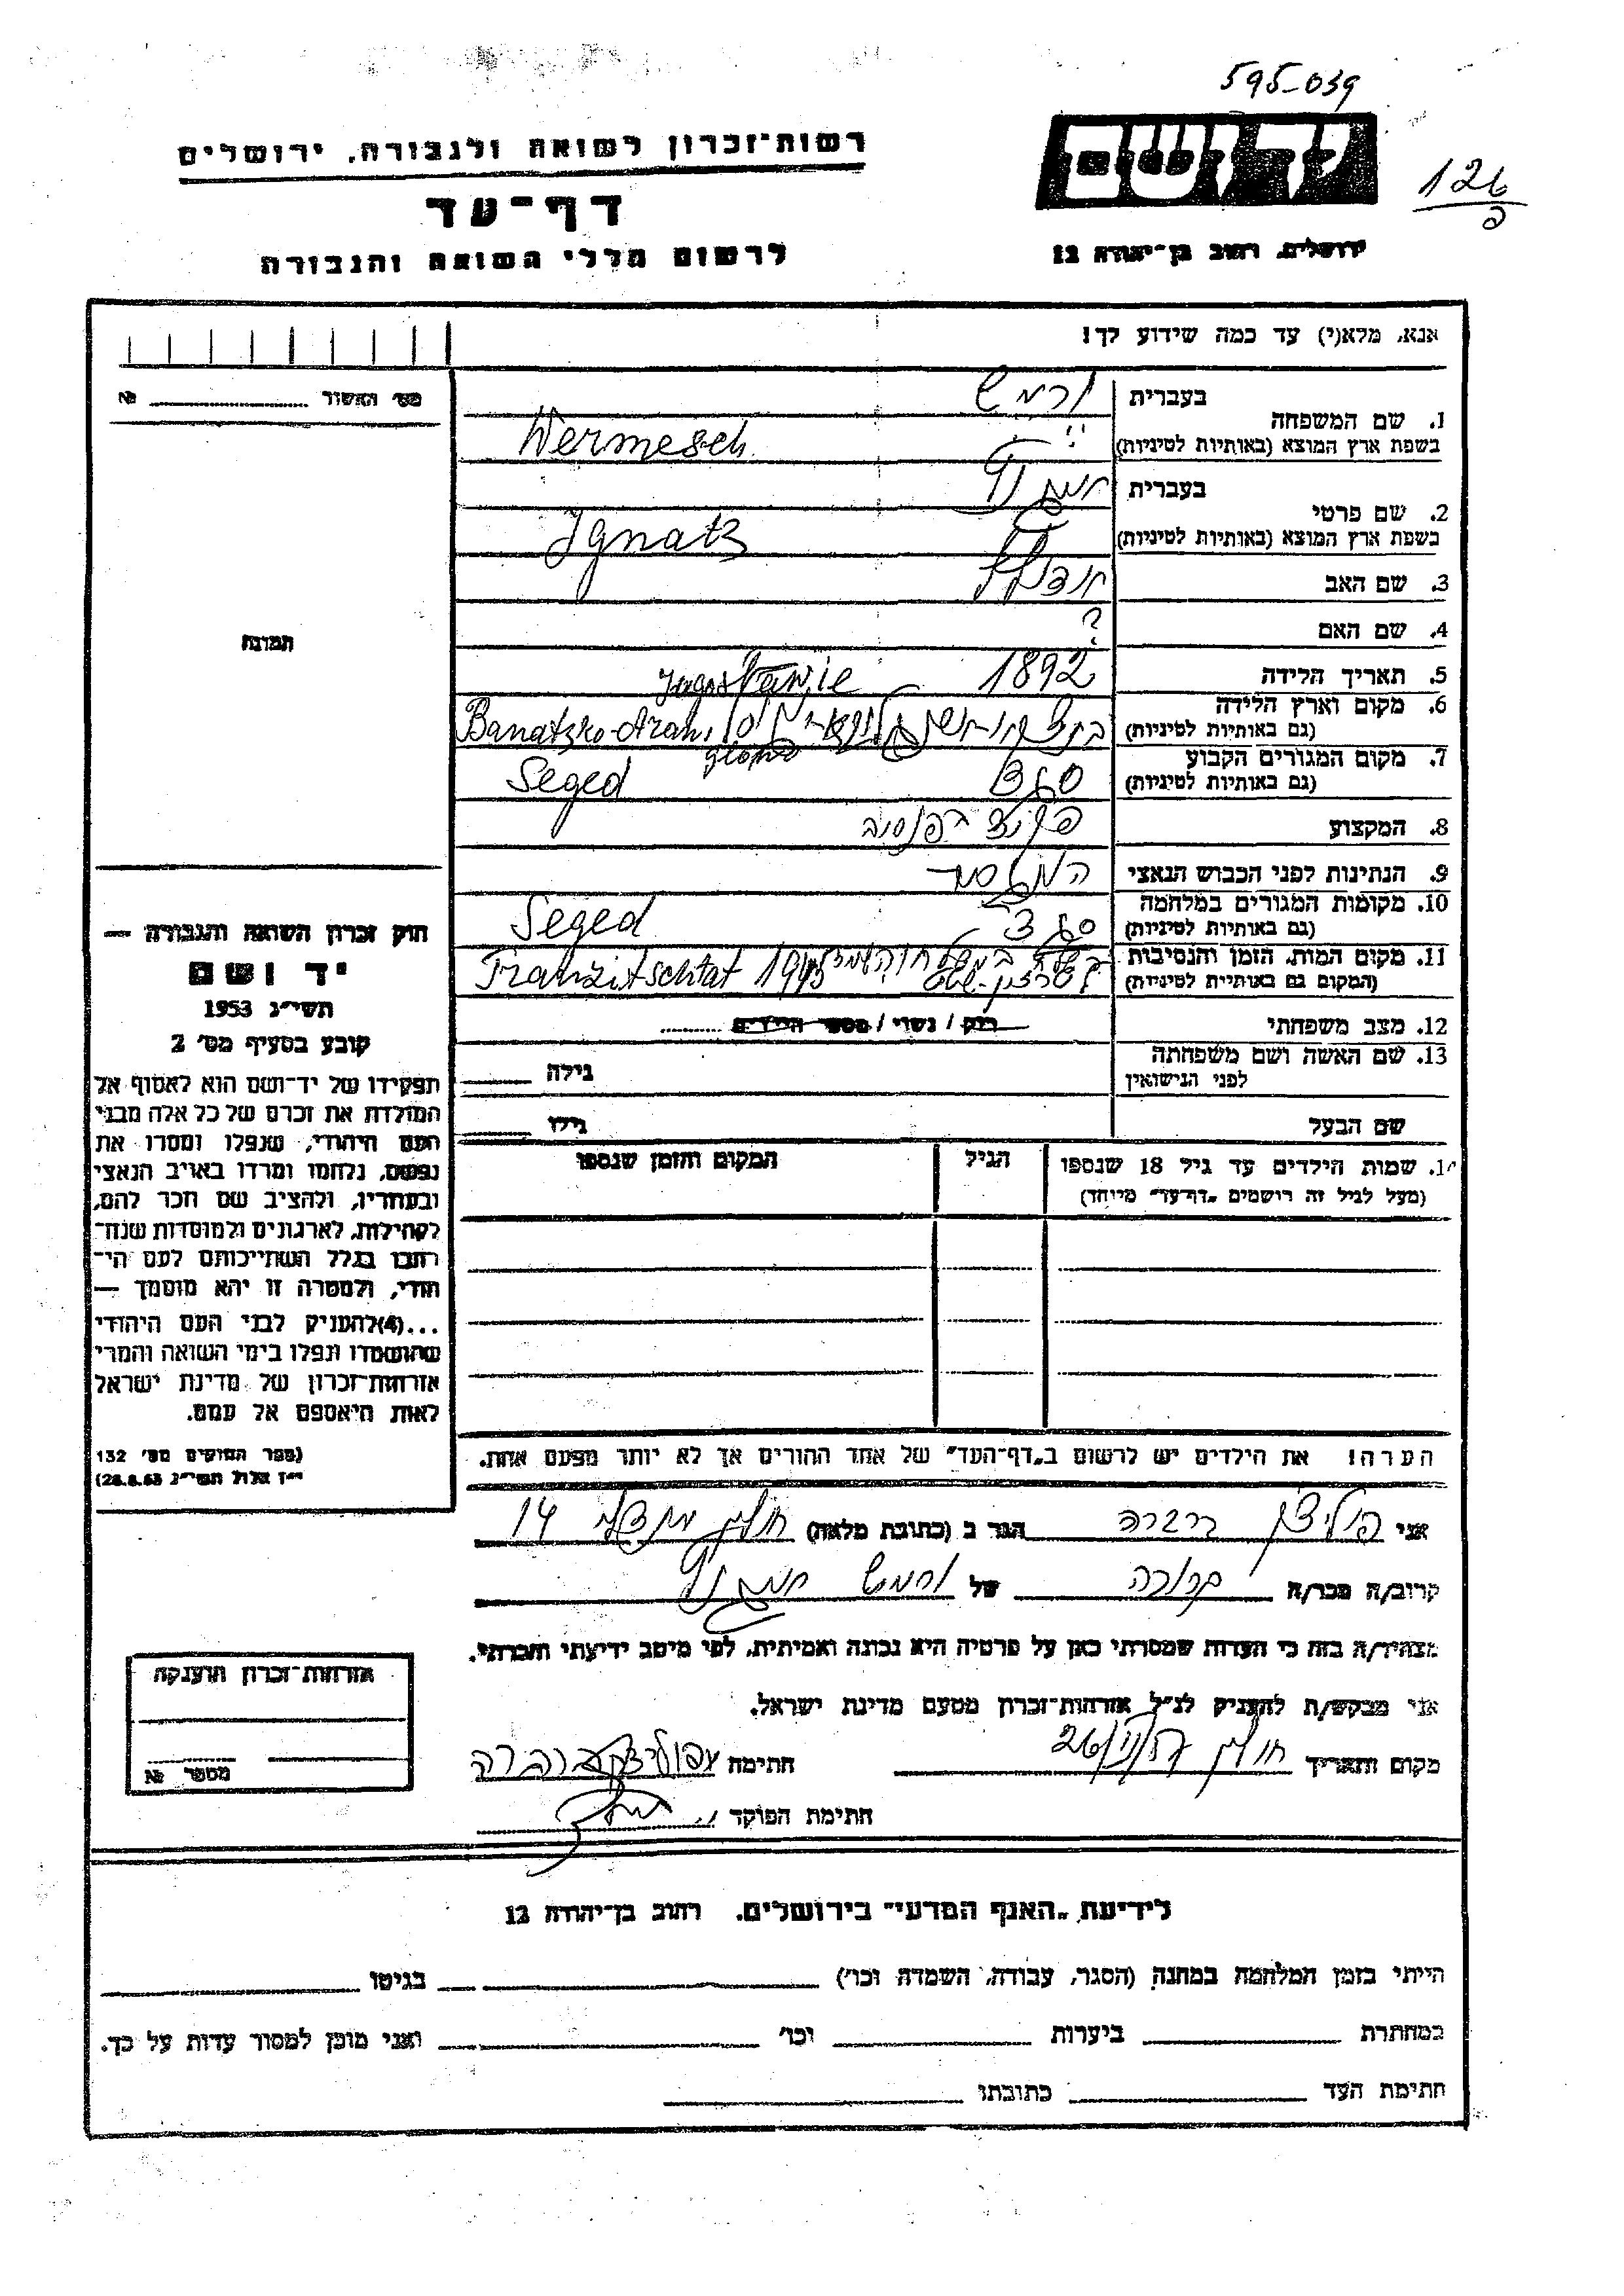 595-039
רשות-זכרון לשואה ולגבורה, ירושלים
יד ושם
126
דף-עד
לרשום חללי השואה והגבורה
ירושלים, רחוב בן-יהודה 12
אנא, מלא(י) עד כמה שידוע לך!
מס' האשור № 
1. שם המשפחה
בעברית ורמש
בשפת ארץ המוצא (באותיות לטיניות) Wermesch
2. שם פרטי
בעברית
בשפת ארץ המוצא (באותיות לטיניות) Ignatz
3. שם האב
4. שם האם ?
5. תאריך הלידה 1892
6. מקום וארץ הלידה Jugoslawie
(גם באותיות לטיניות) Banatzko-Aran.
7. מקום המגורים הקבוע סגד
(גם באותיות לטיניות) Seged
8. המקצוע פקיד
9. הנתינות לפני הכבוש הנאצי
10. מקומות המגורים במלחמה סגד
(גם באותיות לטיניות) Seged
11. מקום המות, הזמן והנסיבות
(המקום גם באותיות לטיניות) Tranzitschtat 1945
12. מצב משפחתי רווק / נשוי / מספר הילדים
13. שם האשה ושם משפחתה
לפני הנישואין
גילה
שם הבעל גילו
14. שמות הילדים עד גיל 18 שנספו הגיל המקום והזמן שנספו
(מעל לגיל זה רושמים „דף-עד" מיוחד)
הערה! את הילדים יש לרשום ב„דף-העד" של אחד ההורים אך לא יותר מפעם אחת.
תמונה
חוק זכרון השואה והגבורה —
יד ושם
תשי"ג 1953
קובע בסעיף מס' 2
תפקידו של יד-ושם הוא לאסוף אל
המולדת את זכרם של כל אלה מבני
העם היהודי, שנפלו ומסרו את
נפשם, נלחמו ומרדו באויב הנאצי
ובעוזריו, ולהציב שם וזכר להם,
לקהילות, לארגונים ולמוסדות שנח-
רבו בגלל השתייכותם לעם היה-
ודי, ולמטרה זו יהא מוסמך —
...(4)להעניק לבני העם היהודי
שהושמדו ונפלו בימי השואה והמרי
אזרחות-זכרון של מדינת ישראל
לאות היאספם אל עמם.
(ספר החוקים מס' 132
י"ז אלול תשי"ג 28.8.53)
אני פוליצר ברברה הגר ב (כתובת מלאה) חולון 14
קרוב/ה מכר/ה קרובה של ורמש
מצהיר/ה בזה כי העדות שמסרתי כאן על פרטיה היא נכונה ואמיתית, לפי מיטב ידיעתי והכרתי.
אני מבקש/ת להעניק לנ"ל אזרחות-זכרון מטעם מדינת ישראל.
מקום ותאריך חולון חתימה
חתימת הפוקד
אזרחות-זכרון הוענקה
מספר №
לידיעת „האגף המדעי" בירושלים, רחוב בן-יהודה 12
הייתי בזמן המלחמה במחנה (הסגר, עבודה, השמדה וכו') בגיטו
במחתרת ביערות וכו' ואני מוכן למסור עדות על כך.
חתימת העד כתובתו